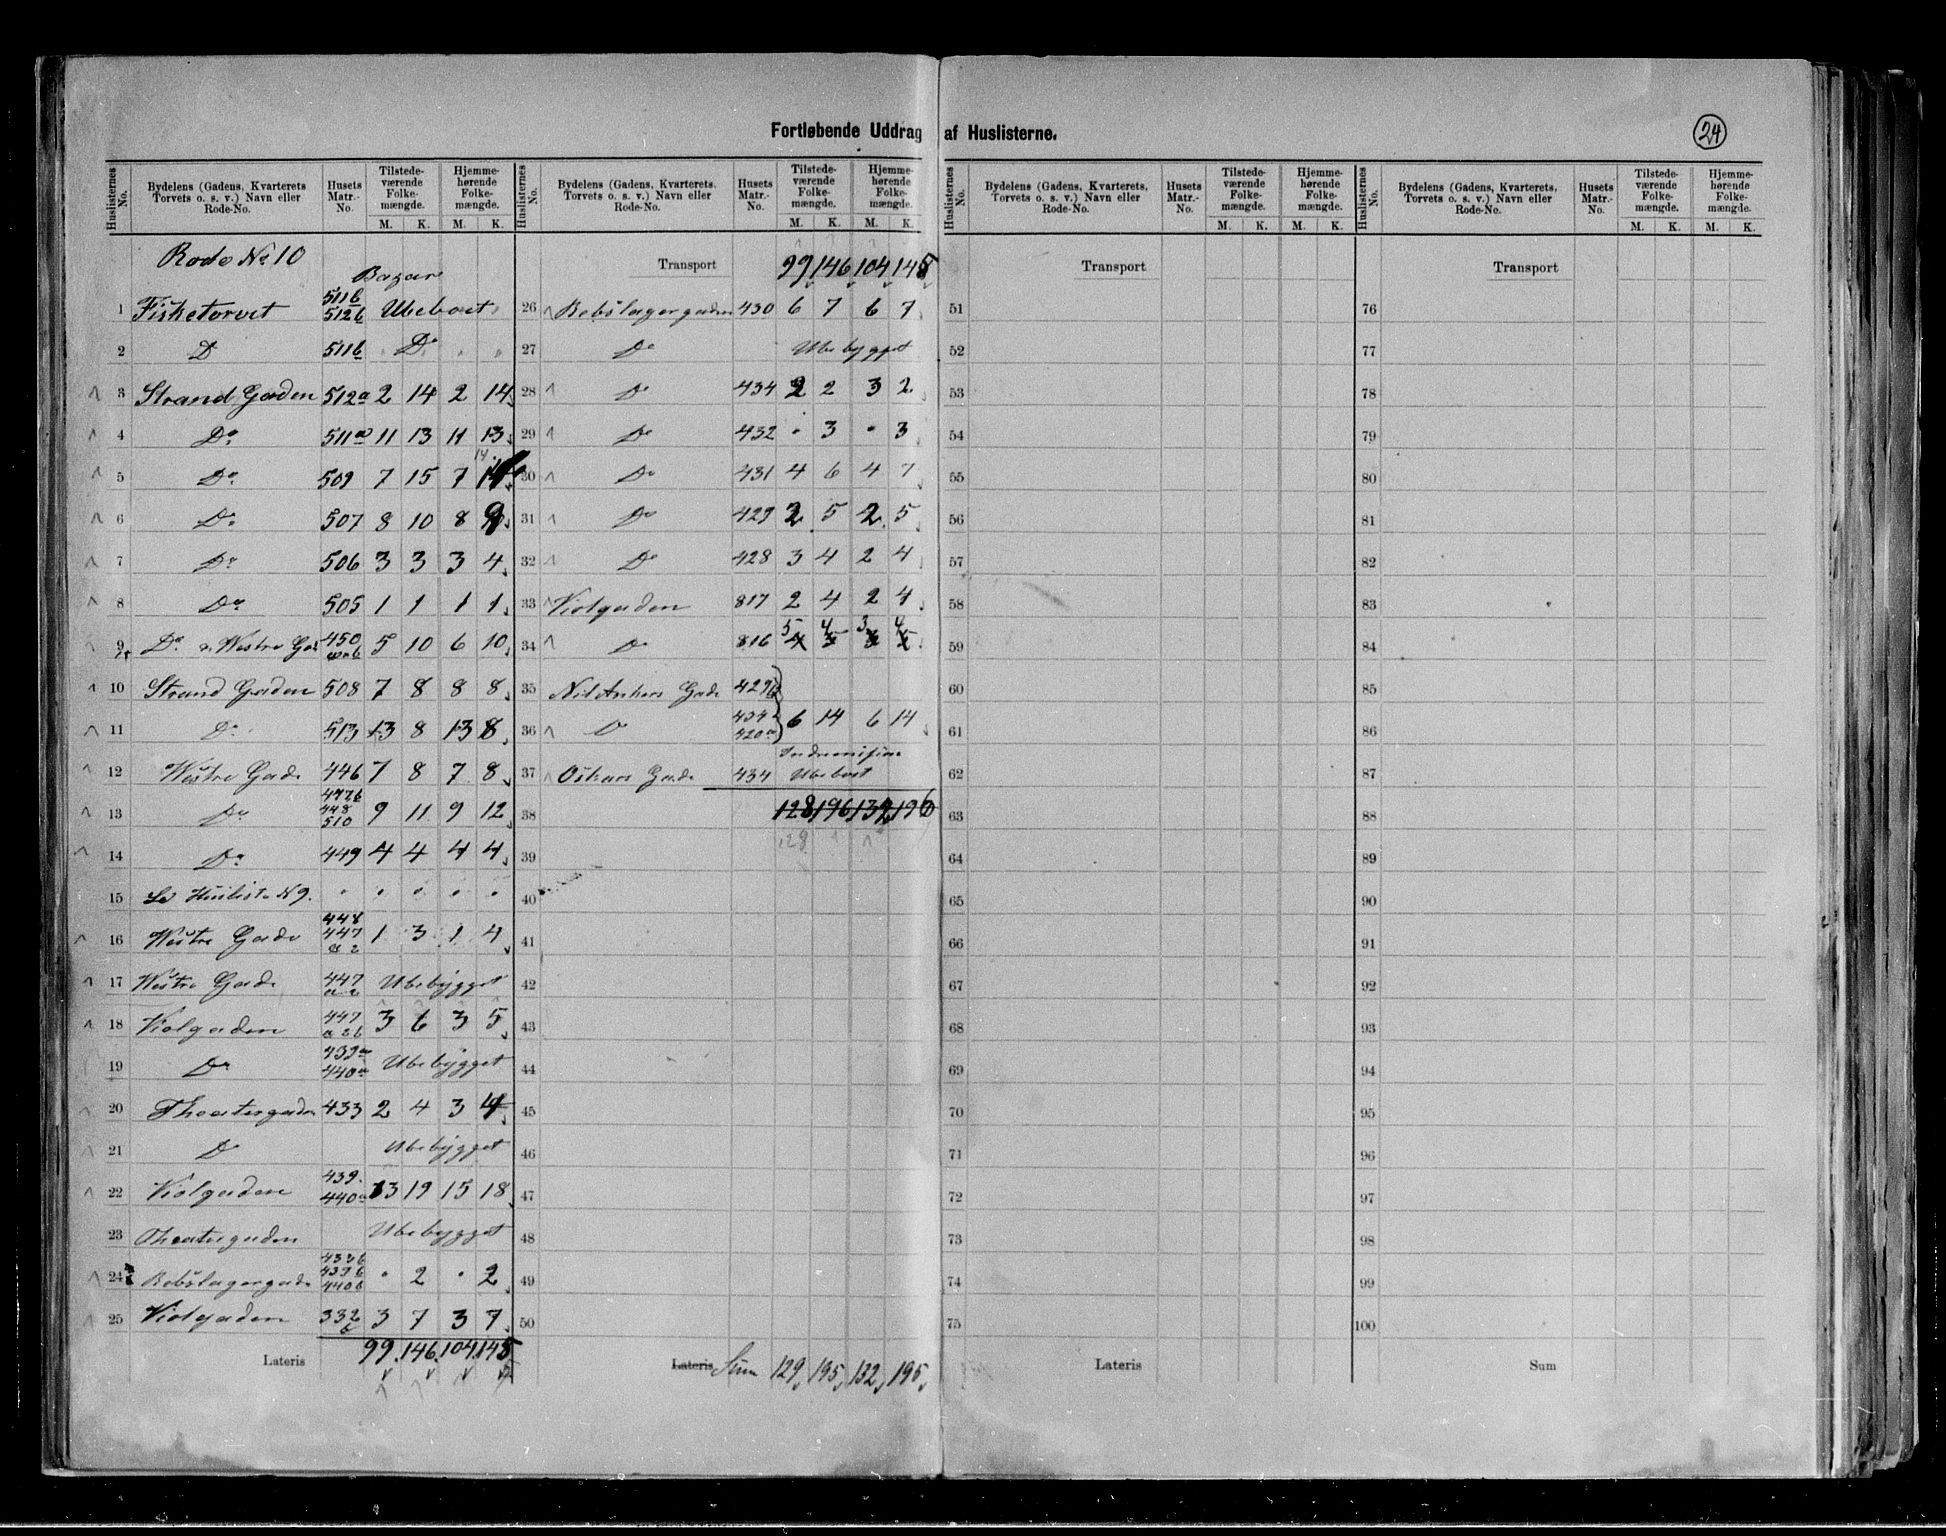 Fortløbende Uddrag af Huslisterne.
24
Huslisternes No. Bydelens (Gadens, Kvarterets Torvets o. s. v.) Navn eller Rode-No. Husets Matr.-No. Tilstede-værende Folke-mængde. M. K. Hjemme-hørende Folke-mængde. M. K.
Rode No 10
Bazar
1 Fisketorvet 511b 512b Ubeboet
2 Do 511b Do
3 Strand Gaden 512a 2 14 2 14
4 Do 511a 11 13 11 13
5 Do 509 7 15 7 14
6 Do 507 8 10 8 9
7 Do 506 3 3 3 4
8 Do 505 1 1 1 1
9 Do & Westre Gd 450 5 10 6 10
10 Strand Gaden 508 7 8 8 8
11 Do 513 13 8 13 8
12 Westre Gade 446 7 8 7 8
13 Do 448 510 9 11 9 12
14 Do 449 4 4 4 4
15 Se Husliste N 9.
16 Westre Gade 448 447 1 3 1 4
17 Westre Gade 447 Ubebygget
18 Violgaden 447 3 6 3 5
19 Do 439a 440a Ubebygget
20 Theatergaden 433 2 4 3 4
21 Do Ubebygget
22 Violgaden 439 440a 13 19 15 18
23 Theatergaden Ubebygget
24 Rebslagergade 433b 439b 440b " 2 " 2
25 Violgaden 332 3 7 3 7
Lateris 99 146 104 145
Huslisternes No. Bydelens (Gadens, Kvarterets, Torvets o. s. v.) Navn eller Rode-No. Husets Matr.-No. Tilstede-værende Folke-mængde. M. K. Hjemme-hørende Folke-mængde. M. K.
Transport 99 146 104 145
26 Rebslagergaden 430 6 7 6 7
27 Do Ubebygget
28 Do 434 2 2 3 2
29 Do 432 " 3 " 3
30 Do 431 4 6 4 7
31 Do 429 2 5 2 5
32 Do 428 3 4 2 4
33 Violgaden 817 2 4 2 4
34 Do 816 5 4 3 4
35 Nil Ankers Gade 429b
36 Do 434 420a 6 14 6 14
37 Oskars Gade 434 Ubeboet
38 128 196 132 196
128
39
40
41
42
43
44
45
46
47
48
49
50
Lateris Sum 129 195 132 195
Huslisternes No. Bydelens (Gadens, Kvarterets, Torvets o. s. v.) Navn eller Rode-No. Husets Matr.-No. Tilstede-værende Folke-mængde. M. K. Hjemme-hørende Folke-mængde. M. K.
Transport
51
52
53
54
55
56
57
58
59
60
61
62
63
64
65
66
67
68
69
70
71
72
73
74
75
Lateris
Huslisternes No. Bydelens (Gadens, Kvarterets, Torvets o. s. v.) Navn eller Rode-No. Husets Matr.-No. Tilstede-værende Folke-mængde. M. K. Hjemme-hørende Folke-mængde. M. K.
Transport
76
77
78
79
80
81
82
83
84
85
86
87
88
89
90
91
92
93
94
95
96
97
98
99
100
Sum